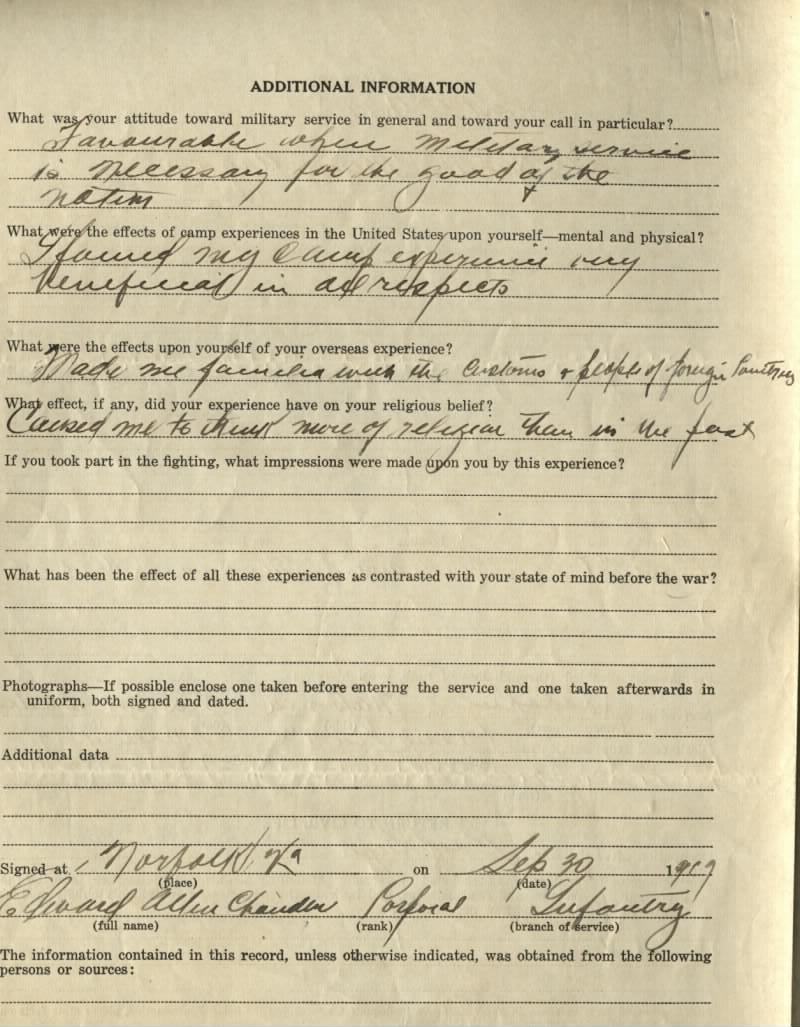 ADDITIONAL INFORMATION
What was your attitude toward military service in general and toward your call in particular?
Favourable when military service
is necessary for the good of the
nation
What were the effects of camp experiences in the United States upon yourself—mental and physical?
I found my Camp experience very
beneficial in all respects
What were the effects upon yourself of your overseas experience?
Made me familiar with the Customs & people of foreign Countrys
What effect, if any, did your experience have on your religious belief?
Caused me to think more of religion than in the past
If you took part in the fighting, what impressions were made upon you by this experience?
What has been the effect of all these experiences as contrasted with your state of mind before the war?
Photographs—If possible enclose one taken before entering the service and one taken afterwards in
uniform, both signed and dated.
Additional data
Signed at Norfolk Va on Sep 30 1919
(place) (date)
Edward Allen Chandler Corporal Infantry
(full name) (rank) (branch of service)
The information contained in this record, unless otherwise indicated, was obtained from the following
persons or sources: